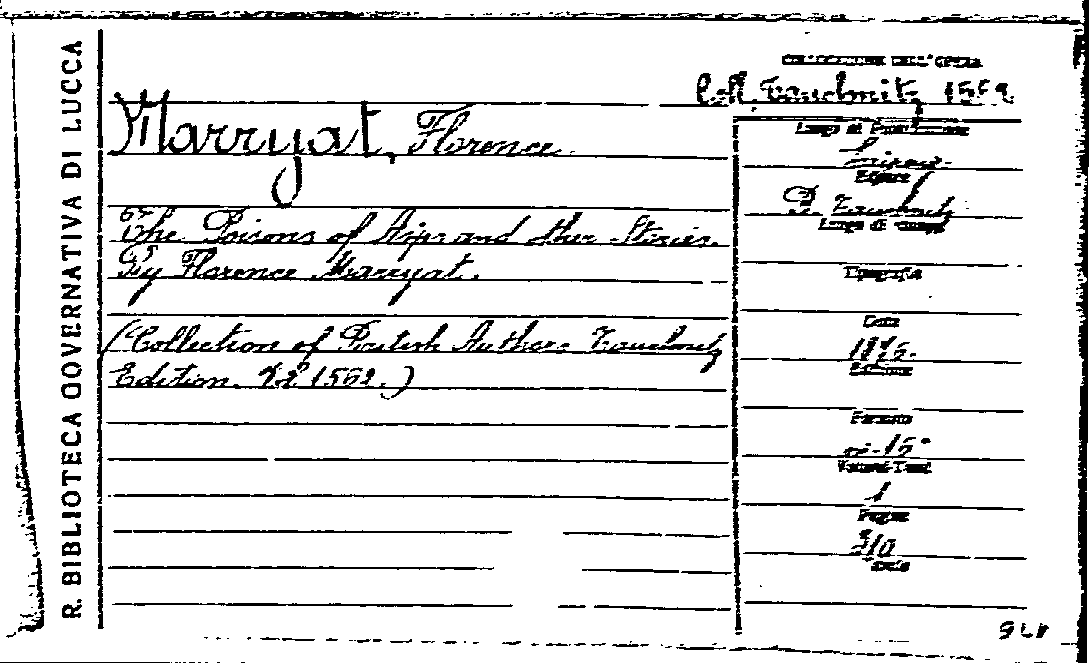 R. BIBLIOTECA GOVERNATIVA DI LUCCA
COLLOCAZIONE DELL'OPERA
Coll. Tauchnitz 1562
Marryat, Florence.
The Poisons of Asps and other Stories.
By Florence Marryat.
(Collection of British Authors Tauchnitz
Edition. Vol. 1562.)
Luogo di Pubblicazione
Editore
B. Tauchnitz
Luogo di stampa
Tipografia
Data
1876.
Edizione
Formato
in-16°
Volumi-Tomi
1
Pagine
310